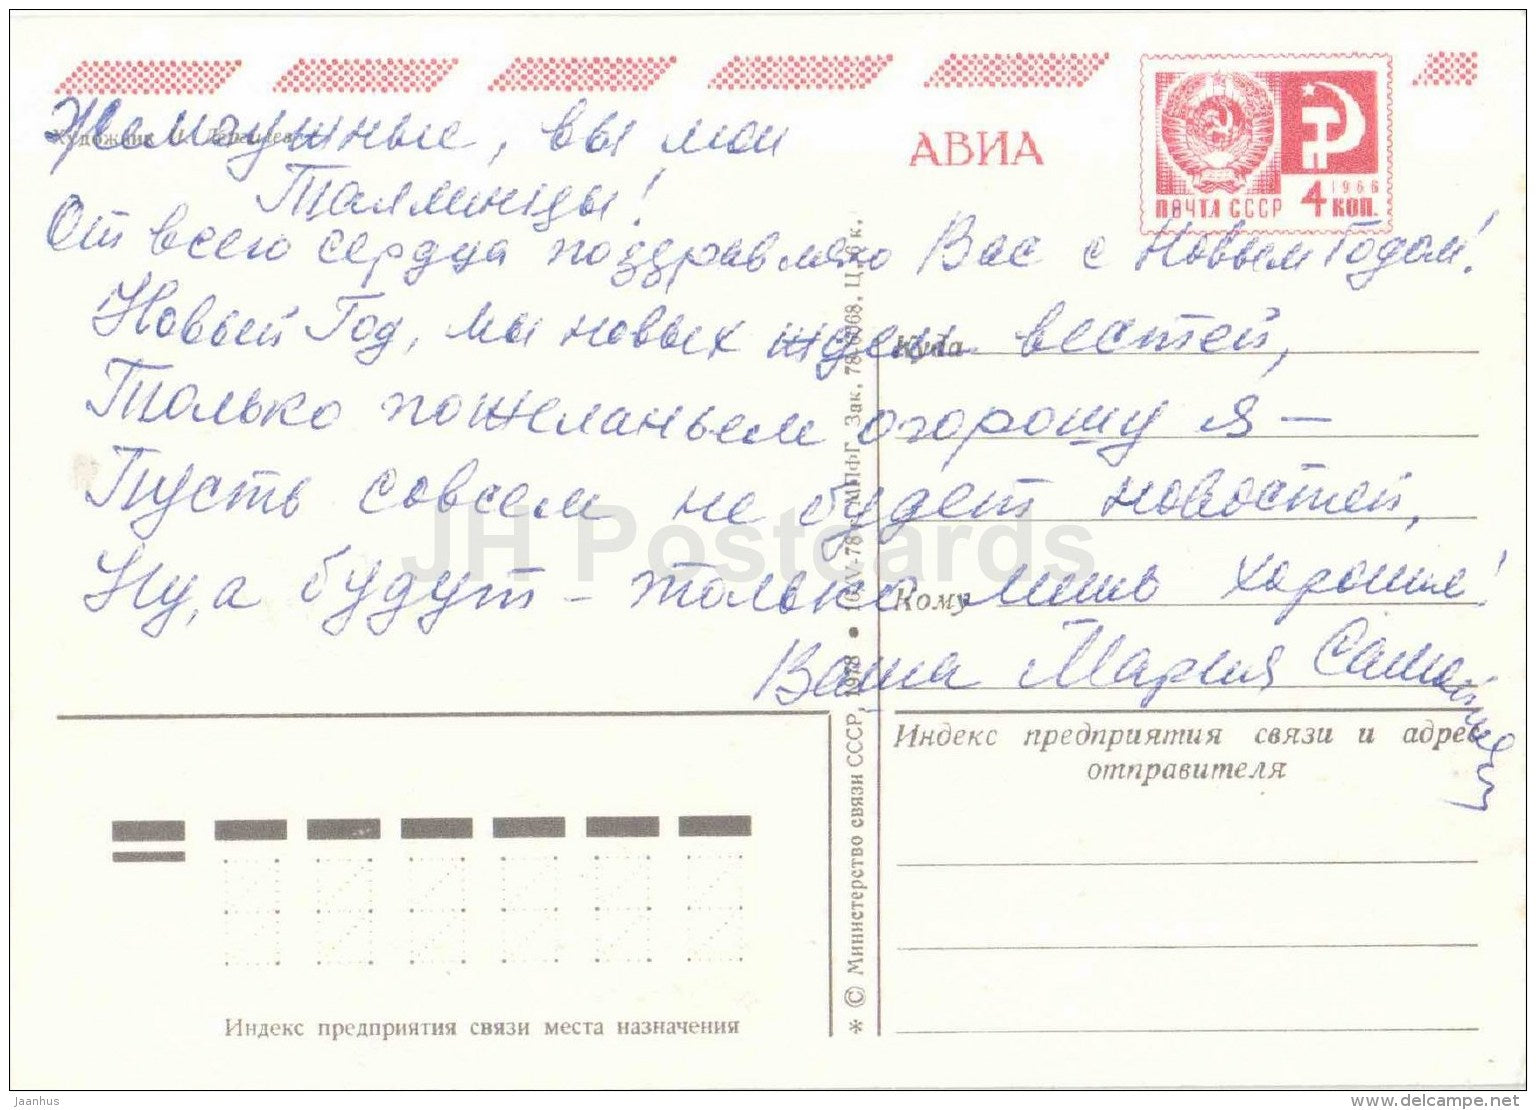 Жемчужные, вы мои
Таллинцы!
От всего сердца поздравляю Вас с Новым Годом!
Новый Год, мы новых ждем вестей,
Только пожеланьем огорошу я —
Пусть совсем не будет новостей,
Ну, а будут – только лишь хорошие!
Ваша Мария
Художник
АВИА
1966
ПОЧТА СССР 4 КОП.
Куда
Кому
Индекс предприятия связи и адрес
отправителя
Индекс предприятия связи места назначения
* © Министерство связи СССР, 1978 •
МПФГ. Зак. Ц. 6 к.
JH Postcards
Jaanhus
www.delcampe.net